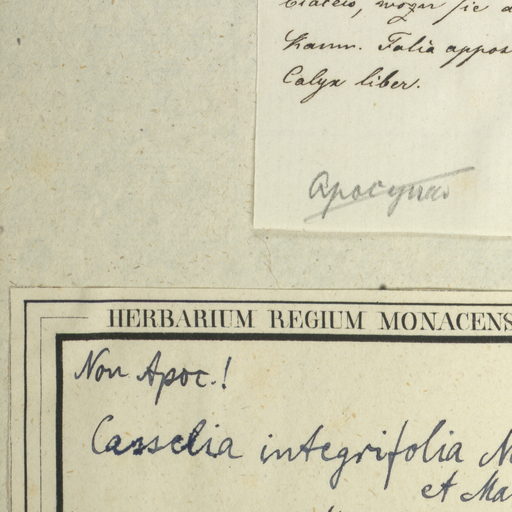 wozu sie
kann. Folia appos
Calyx liber.
Apocyneae
HERBARIUM REGIUM MONACENS
Non Apoc.!
Casselia integrifolia N
et Ma